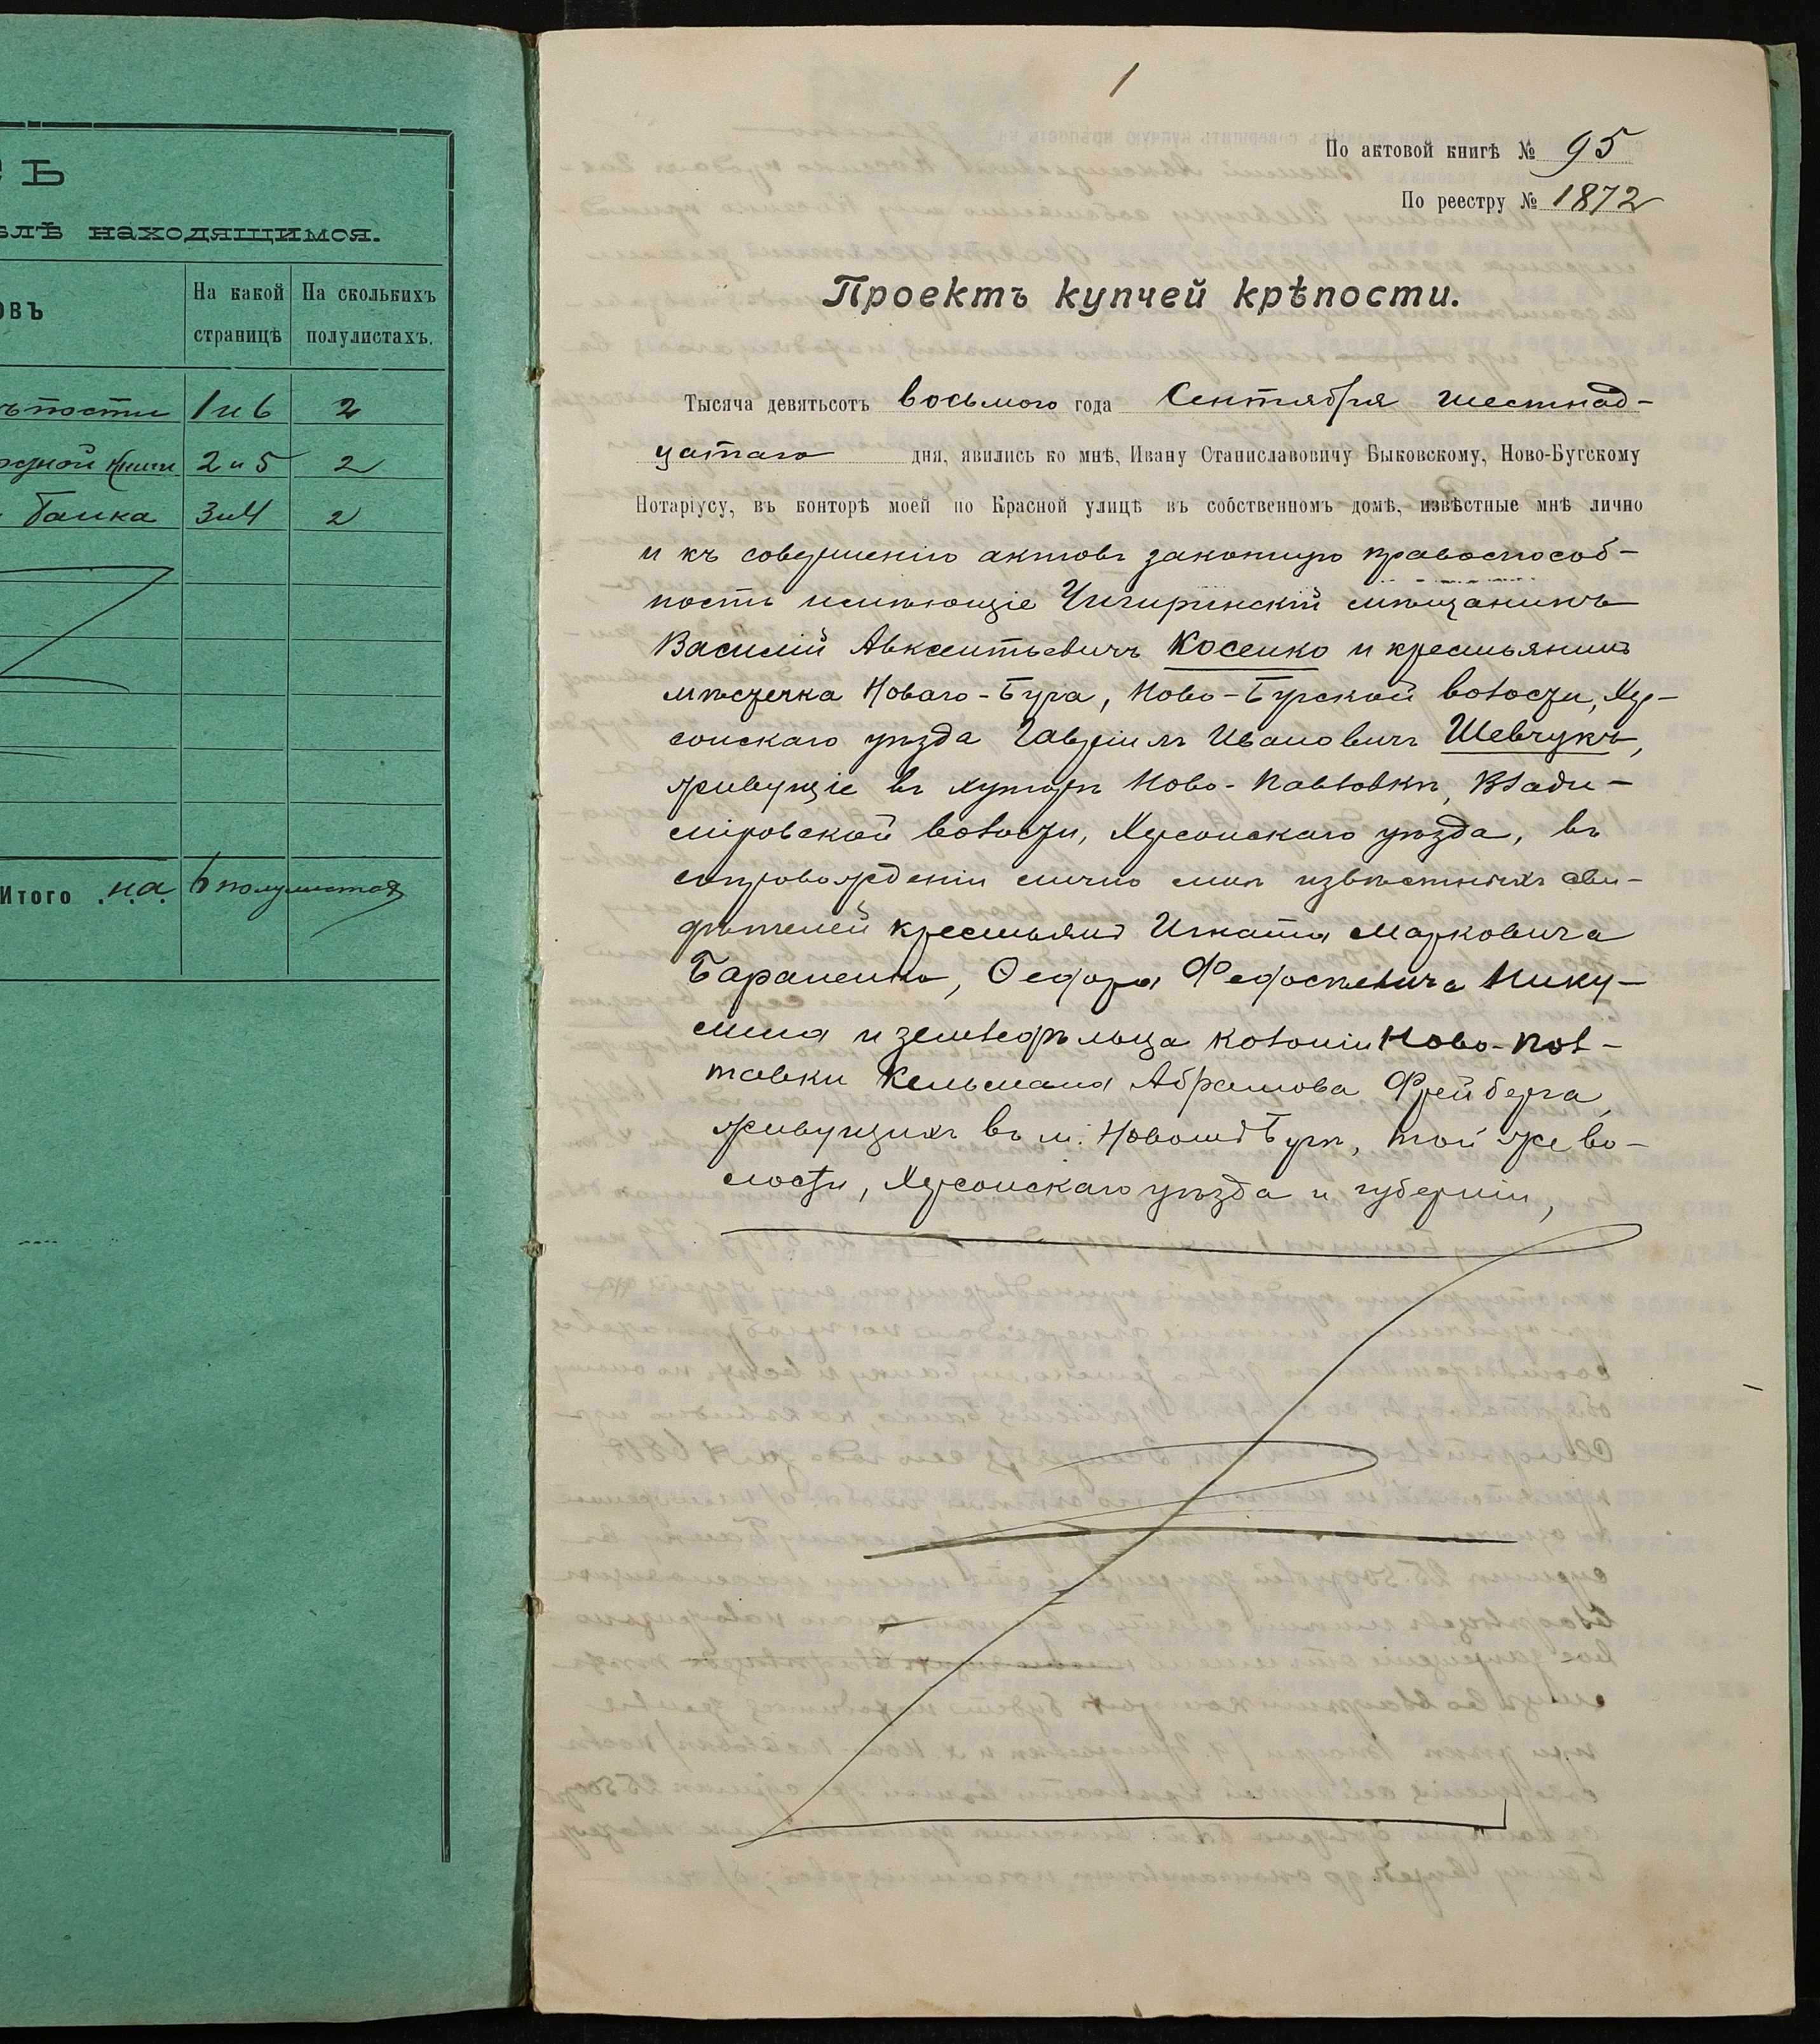 СЬ
ѣлѣ находящимся.
овъ
На какой
страницѣ
На сколькихъ
полулистахъ.
ѣпости 1 и 6 2
книги 2 и 5 2
банка 3 и 4 2
Итого на 6 полулистах
1
По актовой книгѣ № 95
По реестру № 1872
Проектъ купчей крѣпости.
Тысяча девятьсотъ восьмого года Сентября шестнад-
цатаго дня, явились ко мнѣ, Ивану Станиславовичу Быковскому, Ново-Бугскому
Нотаріусу, въ конторѣ моей по Красной улицѣ въ собственномъ домѣ, извѣстные мнѣ лично
и къ совершенію актовъ законную правоспособ-
ность имѣющіе Чигиринскій мѣщанинъ
Василій Авксентьевичъ Косенко и крестьянинъ
мѣстечка Новаго-Буга, Ново-Бугской волости, Хер-
сонскаго уѣзда Гавріилъ Ивановичъ Шевчукъ,
живущіе въ хуторѣ Ново-Павловкѣ, Влади-
міровской волости, Херсонскаго уѣзда, въ
сопровожденіи лично мнѣ извѣстныхъ сви-
дѣтелей крестьянъ Игната Марковича
Бараненко, Ѳедора Федосѣевича Мику-
лина и земледѣльца колоніи Ново-Пол-
тавки Кельмана Абрамова Фрейберга,
живущихъ въ м. Новомъ Бугѣ, той же во-
лости, Херсонскаго уѣзда и губерніи,